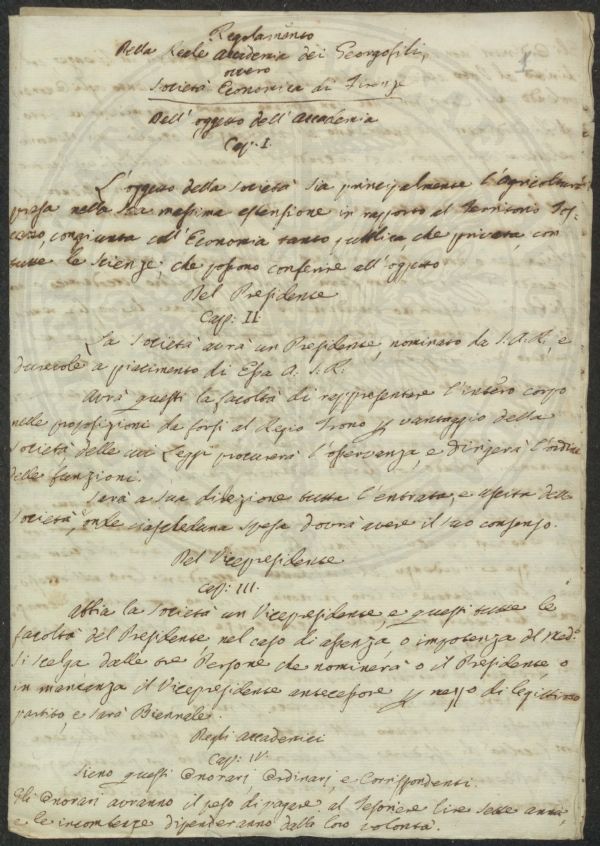 1
Regolamento
Della Reale Accademia dei Georgofili,
ovvero
Società Economica di Firenze
Dell'oggetto dell'Accademia
Cap: I.
L'oggetto della Società sia principalmente l'Agricoltura
presa nella sua massima estensione in rapporto al Territorio Tos-
cano, congiunta coll'Economia tanto pubblica che privata, con
tutte le scienze, che possono conferire all'oggetto
Del Presidente
Capp: II
La Società avrà un Presidente, nominato da S.A.R., e
durevole a piacimento di Essa A.S.R.
Avrà questi la facoltà di rappresentare l'intero corpo
nelle proposizioni da farsi al Regio Trono per vantaggio della
Società delle cui Leggi procurerà l'osservanza, e dirigerà l'ordine
delle funzioni.
Sarà a sua direzione tutta l'entrata, e uscita della
Società, onde ciascheduna spesa dovrà avere il suo consenso.
Del Vicepresidente
Capp: III.
Abbia la Società un Vicepresidente, e questi tutte le
facoltà del Presidente nel caso di assenza, o impotenza del med.o
Si scelga dalle tre Persone che nominerà o il Presidente, o
in mancanza il Vicepresidente antecessore per mezzo di legittimo
partito, e sarà Biennale.
Degli Accademici
Capp: IV.
Sieno questi Onorari, Ordinari, e Corrispondenti.
Gli Onorari avranno il peso di pagare al Tesoriere lire sette annue,
e le incombenze dipenderanno dalla loro volontà.